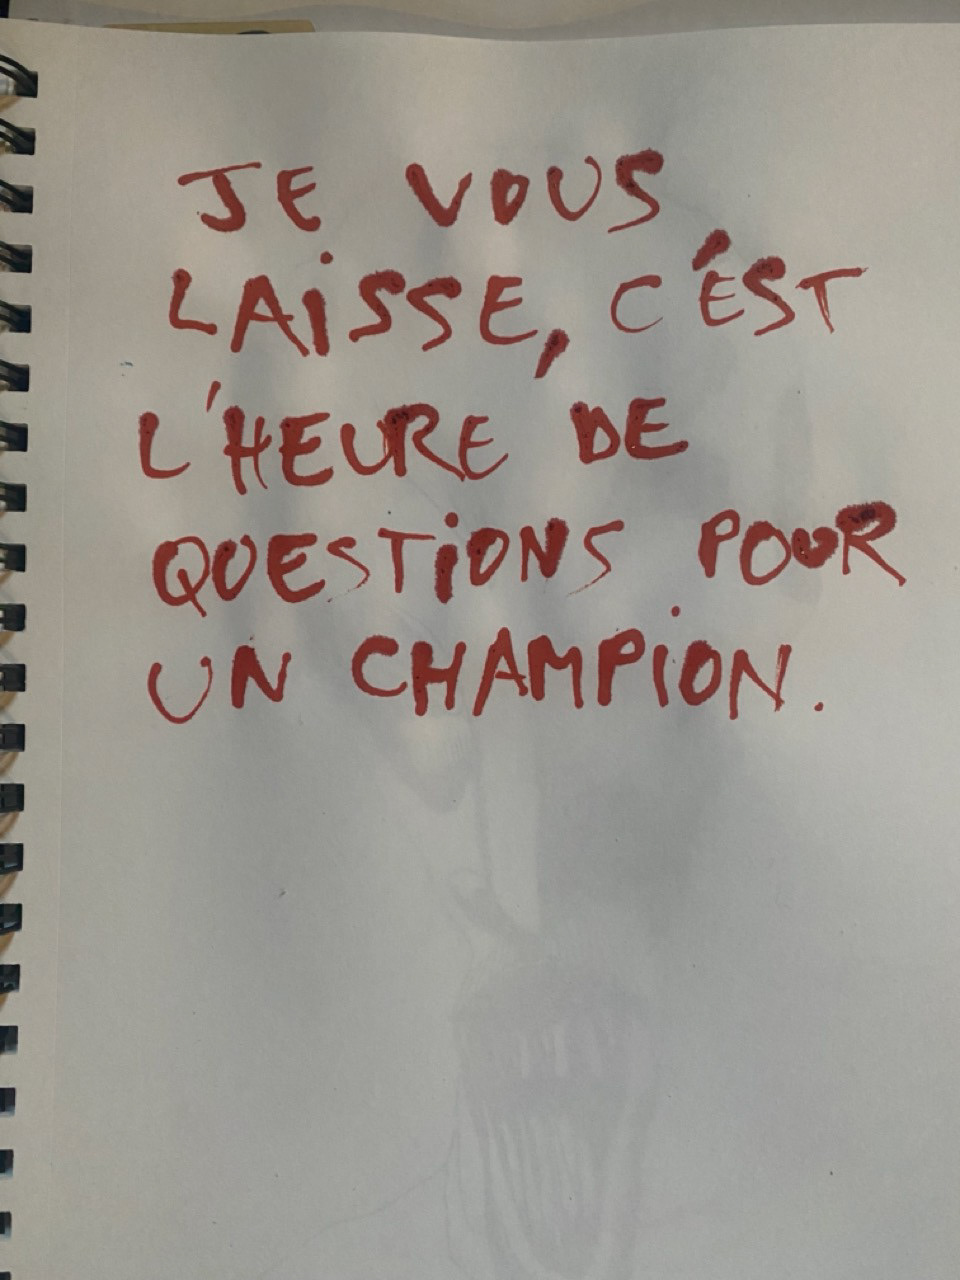 JE VOUS
LAiSSE, C'EST
L'HEURE DE
QUESTiONS POUR
UN CHAMPiON.